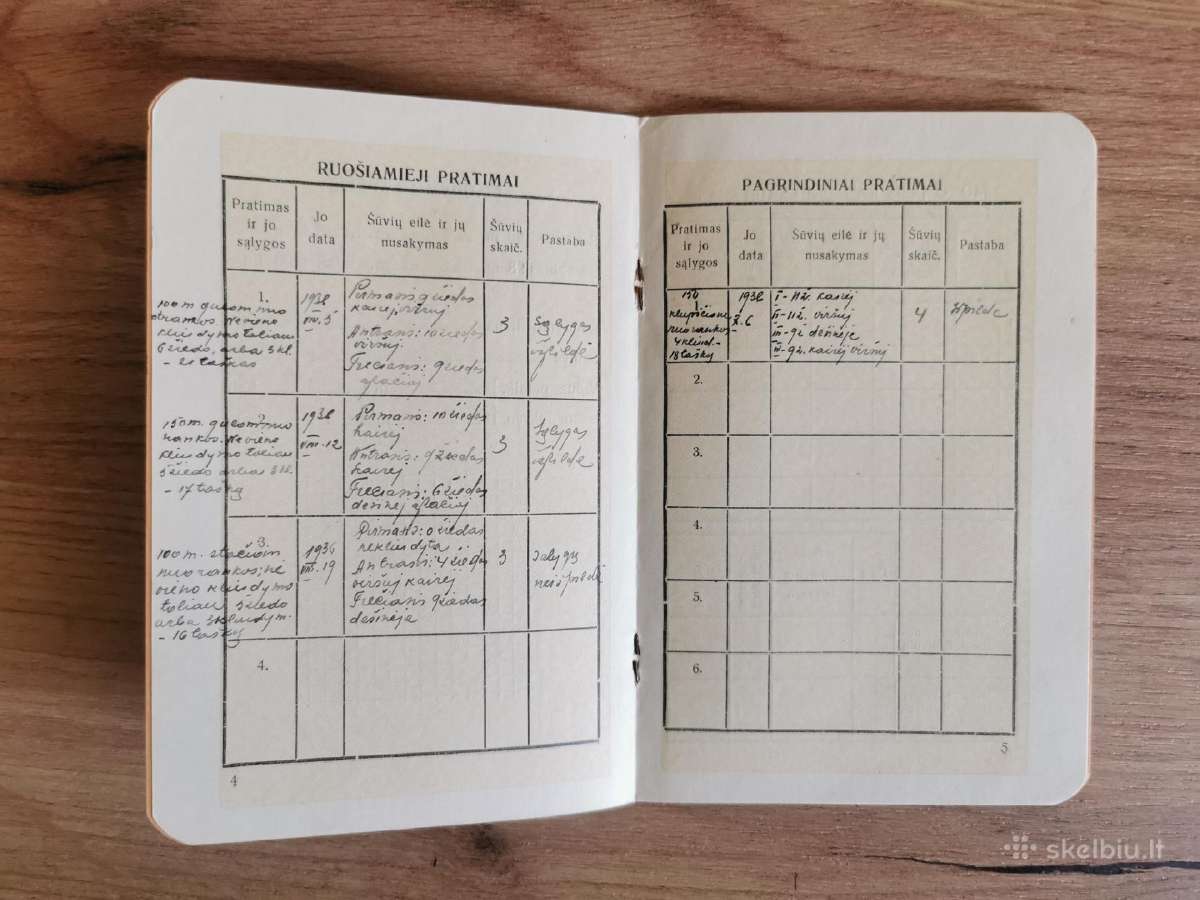 RUOŠIAMIEJI PRATIMAI
Pratimas
ir jo
sąlygos
Jo
data
Šūvių eilė ir jų
nusakymas
Šūvių
skaič.
Pastaba
1.
100 m. gulom nuo
atrankos. Ne vieno
kliudymo toliau
6 žiedo, arba 3 kl.
- 21 taškas
1938
VIII.5
Pirmasis 9 žiedas
kairėj viršuj
Antrasis: 10 žiedas
viršuj.
Trečiasis: 9 žiedas
apačioj
3
Sąlygas
išpildė
2.
150 m. gulom nuo
rankos. Ne vieno
kliudymo toliau
5 žiedo arba 3 kl.
- 17 taškų
1938
VIII.12
Pirmasis: 10 žiedas
kairėj
Antrasis: 9 žiedas
kairėj
Trečiasis: 6 žiedas
dešinėj apačioj
3
Sąlygas
išpildė
3.
100 m. stačiom
nuo rankos; ne
vieno kliudymo
toliau 5 žiedo
arba 3 kliudym.
- 16 taškų
VIII.19
Pirmasis: 0 žiedas
nekliudyta
Antrasis: 4 žiedas
viršuj kairėj
Trečiasis 9 žiedas
dešinėje
3
Salygų
neišpildė
4.
4
PAGRINDINIAI PRATIMAI
Pratimas
ir jo
sąlygos
Jo
data
Šūvių eilė ir jų
nusakymas
Šūvių
skaič.
Pastaba
150
nuo rankos
4 kliud-
18 taškų
1938
X.6
I-11ž. kairėj
II-11ž. viršuj
III-9ž dešinėje
IV-9ž. kairėj viršuj
4
Išpildė
2.
3.
4.
5.
6.
5
skelbiu.lt